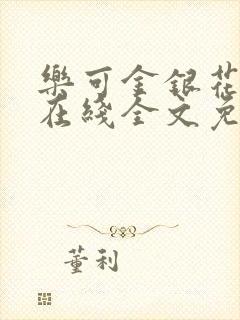 樂可金銀花
在綫全文免
董利